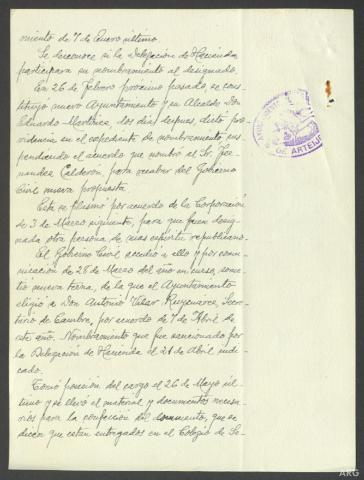 miento de 7 de Enero último.
Se desconoce si la Delegación de Hacienda
participara su nombramiento al designado.
En 26 de Febrero próximo pasado, se cons-
tituyó nuevo Ayuntamiento y su Alcalde Don
Eduardo Martínez, los días despues, dictó pro-
videncia en el expediente de nombramiento sus-
pendiendo el acuerdo que nombró al Sr. Fer-
nandez Calderón, para recabar del Gobierno
Civil nueva propuesta.
Esta se plasmó por acuerdo de la Corporación
de 3 de Marzo siguiente, para que fuera desig-
nada otra persona de mas espíritu republicano.
El Gobierno Civil accedió a ello y por comu-
nicación de 28 de Marzo del año en curso, some-
tió nueva terna, de la que el Ayuntamiento
eligió a Don Antonio Vilar, Secre-
tario de Cambre, por acuerdo de 7 de Abril de
este año. Nombramiento que fue sancionado por
la Delegación de Hacienda el 21 de Abril indi-
cado.
Tomó posesión del cargo el 26 de Mayo úl-
timo y se llevó el material y documentos necesa-
rios para la confección del documento, que se
dicen que estan entregados en el Colegio de Se-
DE ARTEIJO
AKG